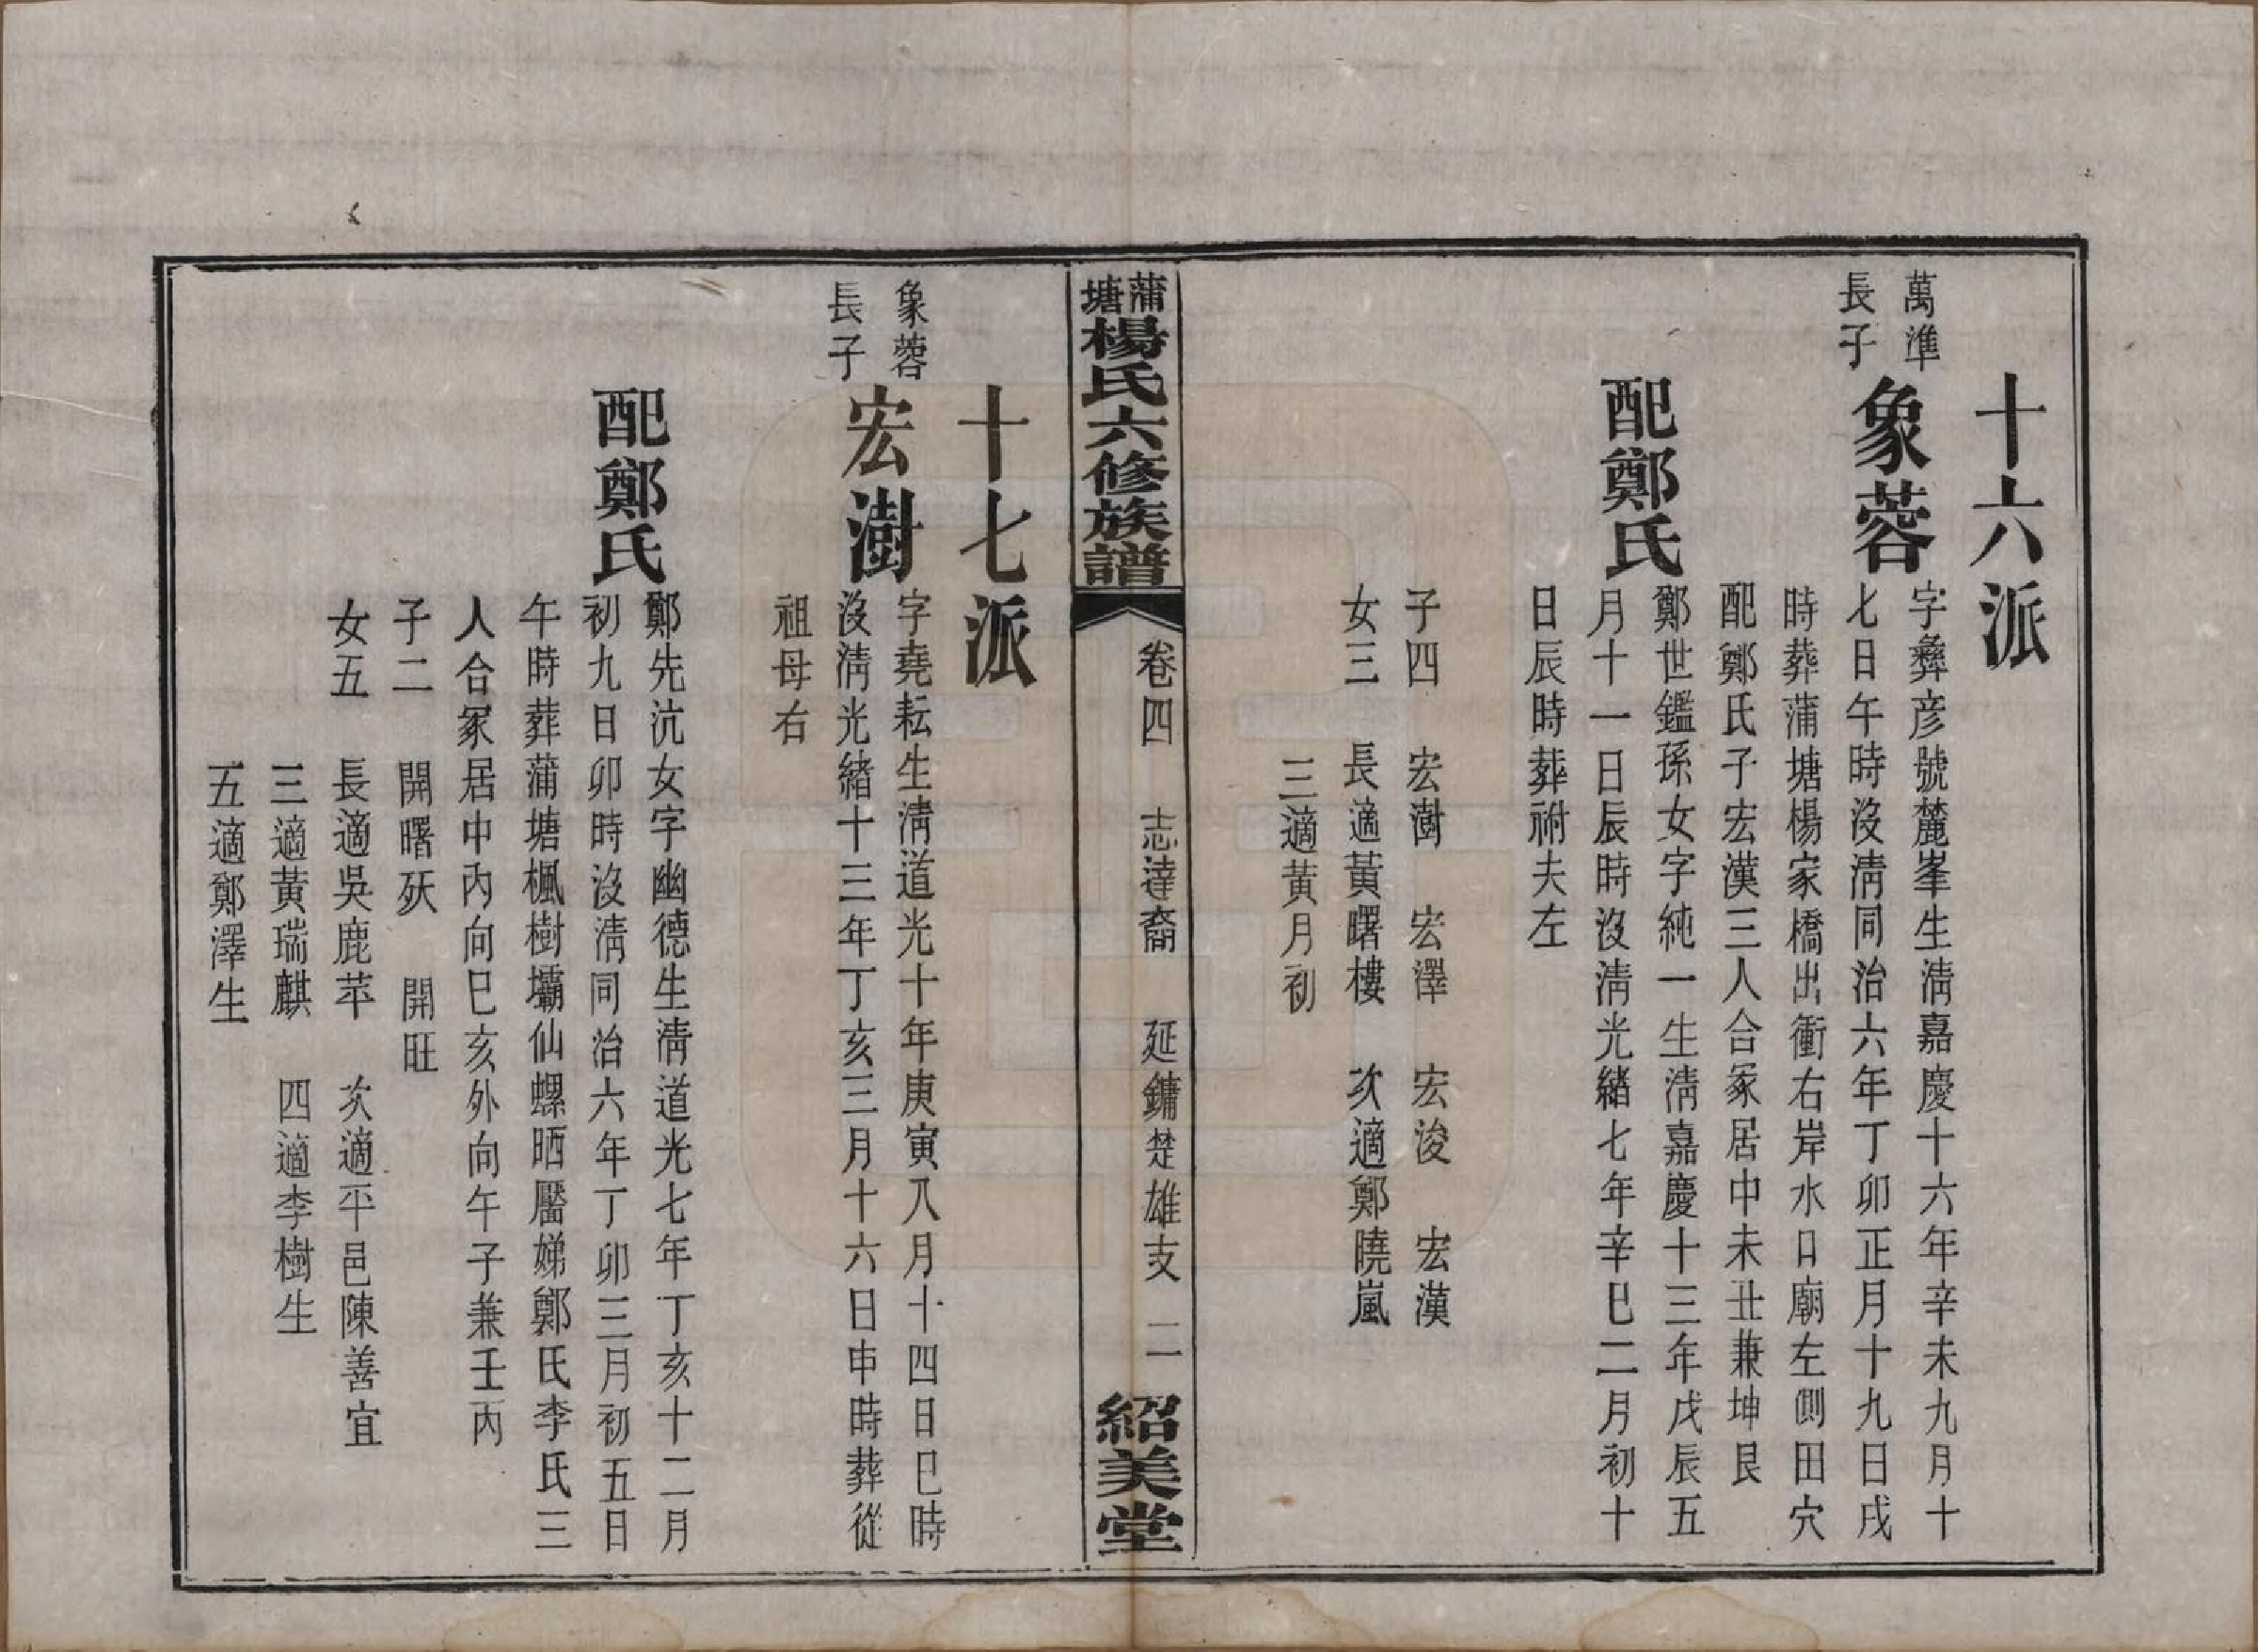 十六派
萬準
長子
象蓉
字彜彥號麓峯生淸嘉慶十六年辛未九月十
七日午時沒淸同治六年丁卯正月十九日戌
時葬蒲塘楊家橋出衝右岸水口廟左側田穴
配鄭氏子宏漢三人合冢居中未丑兼坤艮
配鄭氏
鄭世鑑孫女字純一生淸嘉慶十三年戊辰五
月十一日辰時沒淸光緒七年辛巳二月初十
日辰時葬祔夫左
子四 宏澍 宏澤 宏浚 宏漢
女三 長適黃曙樓 次適鄭曉嵐
三適黃月初
蒲塘楊氏六修族譜 卷四 志達裔 延鏞楚雄支 二 紹美堂
十七派
象蓉
長子
宏澍
字堯耘生淸道光十年庚寅八月十四日巳時
沒淸光緒十三年丁亥三月十六日申時葬從
祖母右
配鄭氏
鄭先沆女字幽德生淸道光七年丁亥十二月
初九日卯時沒淸同治六年丁卯三月初五日
午時葬蒲塘楓樹壩仙螺晒靨娣鄭氏李氏三
人合冢居中內向巳亥外向午子兼壬丙
子二 開曙殀 開旺
女五 長適吳鹿苹 次適平邑陳善宜
三適黃瑞麒 四適李樹生
五適鄭澤生